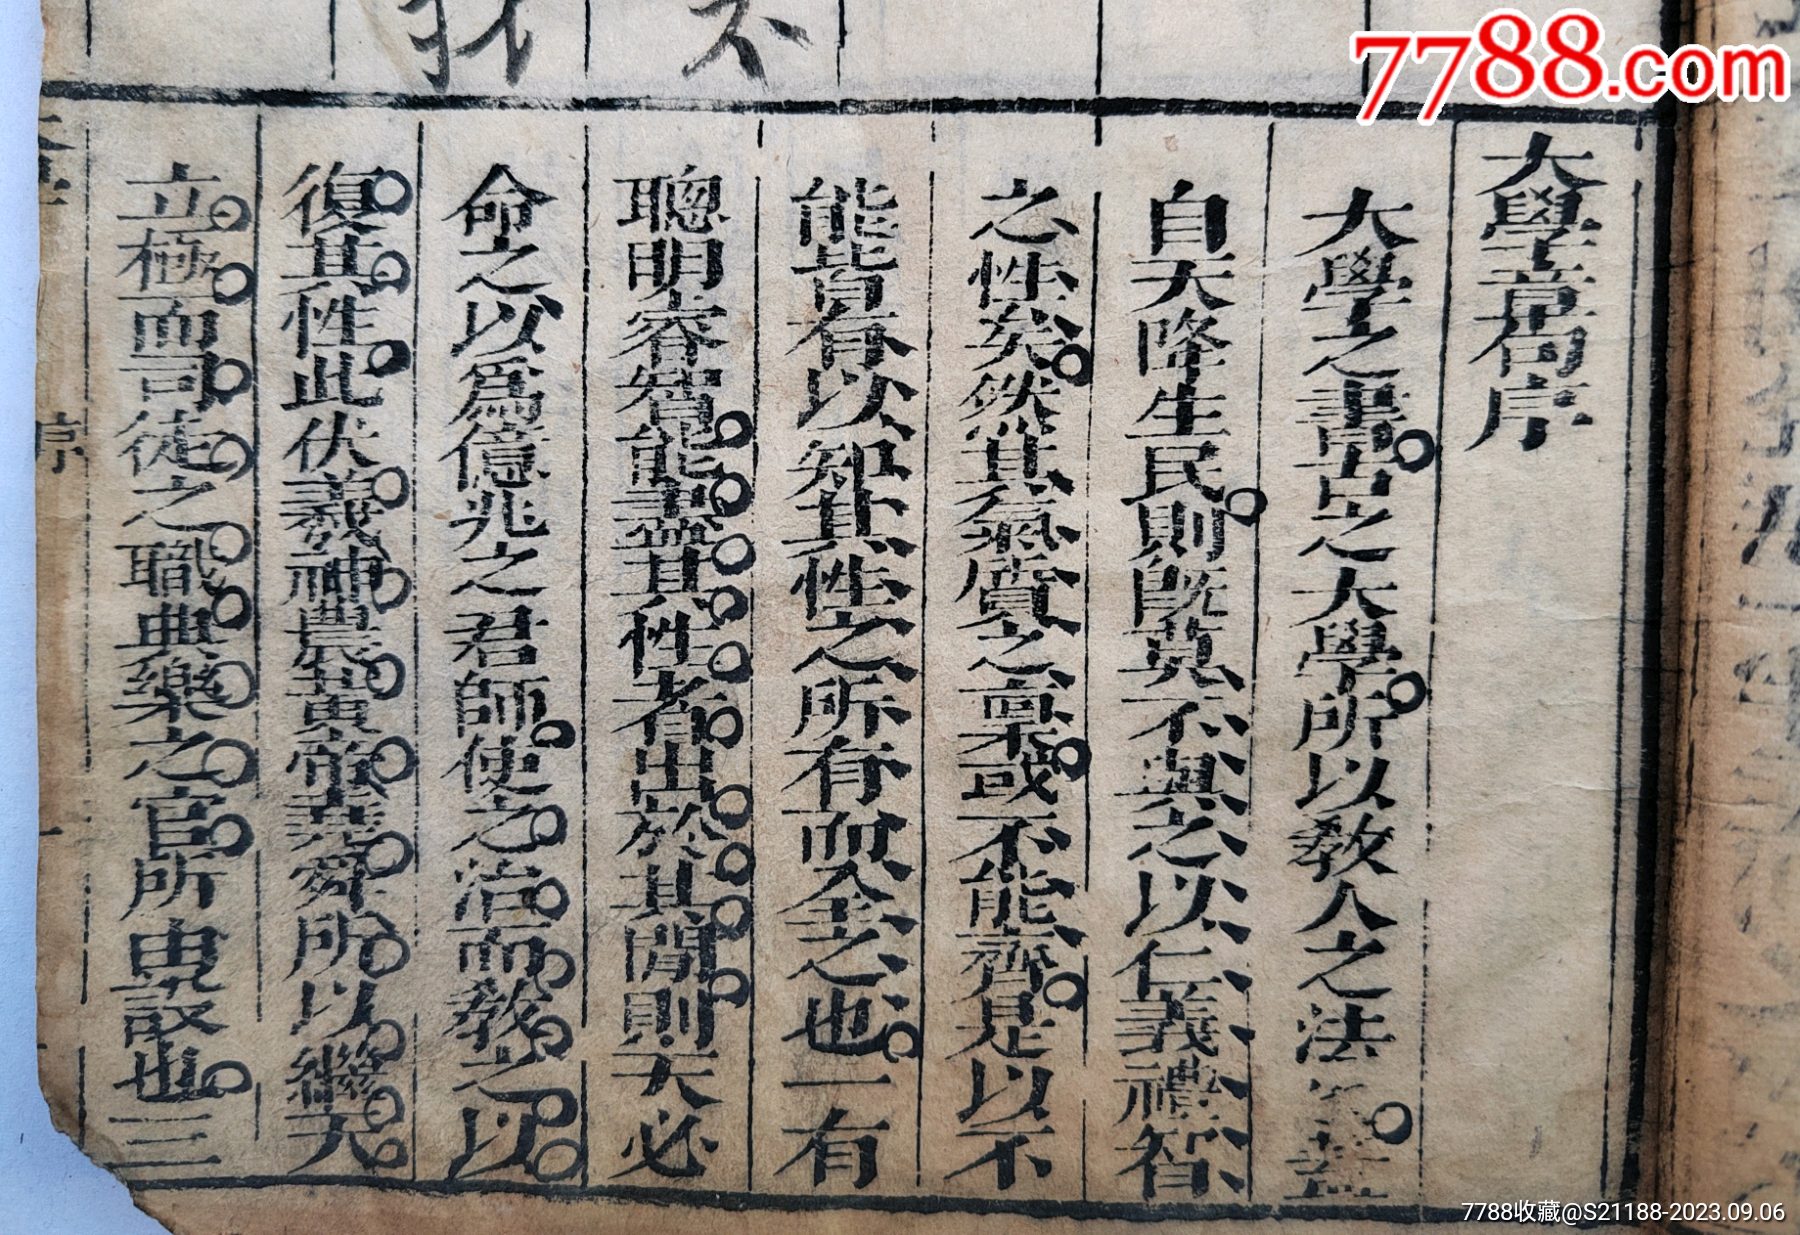 7788.com
大學章句序
大學之書古之大學所以敎人之法蓋
自天降生民則旣莫不與之以仁義禮智
之性矣然其氣質之稟或不能齊是以不
能皆有以知其性之所有而全之也一有
聰明睿智能盡其性者出於其閒則天必
命之以爲億兆之君師使之治而敎之以
復其性此伏羲神農黃帝堯舜所以繼天
立極而司徒之職典樂之官所由設也三
序
7788收藏@S21188-2023.09.06